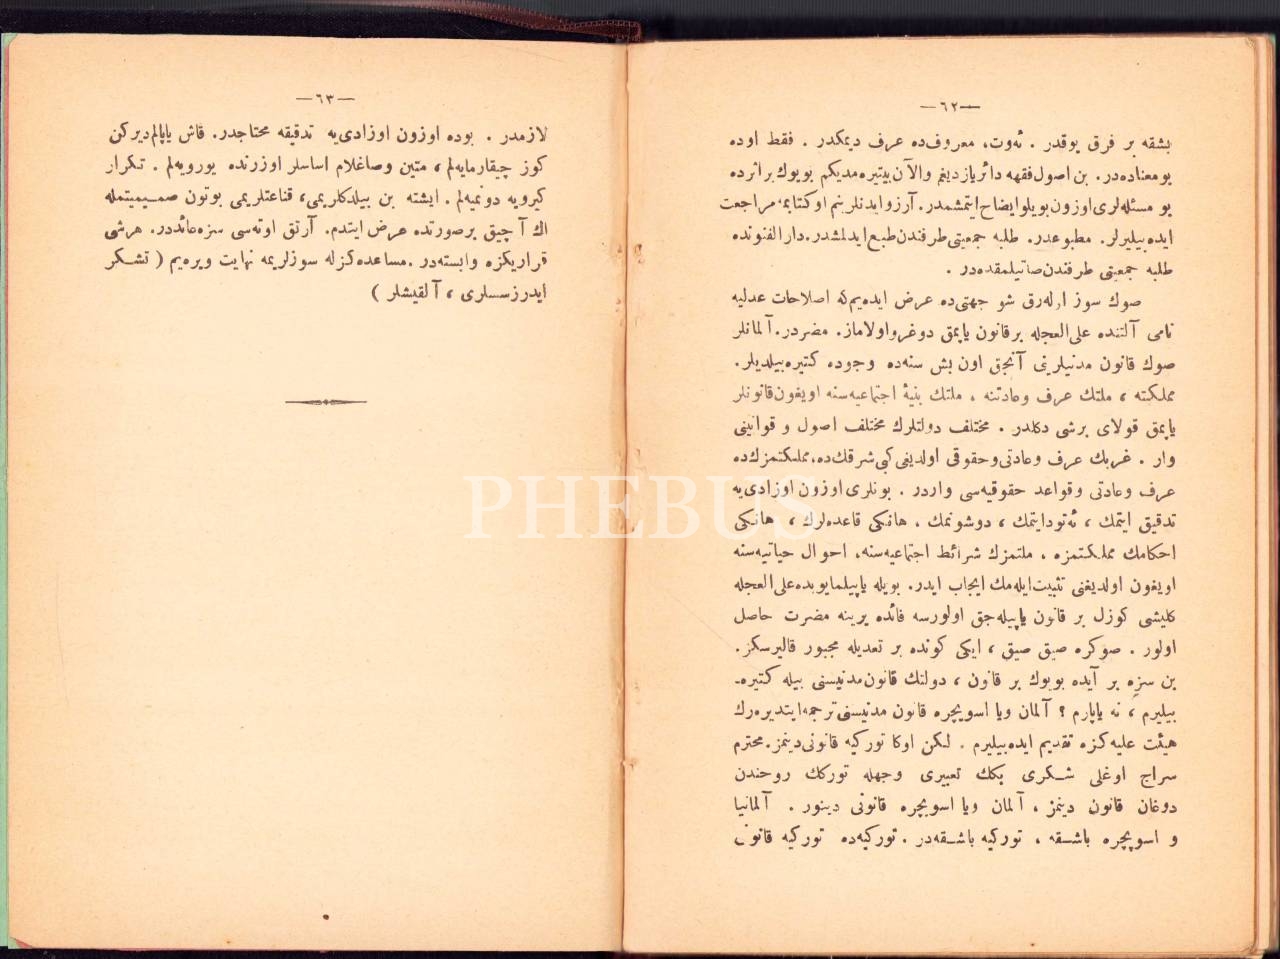 —٦٢—
بشقه بر فرق یوقدر . ئەوت، معروف‌ده عرف دیمكدر . فقط اوده
بو معناده‌در. بن اصول فقهه دائر یازدیغم والآن بیتیره‌مدیكم بویوك بر اثرده
بو مسئله‌لری اوزون بویلو ایضاح ایتمشمدر. آرزو ایدنلر بنم او كتابمه مراجعت
ایده‌بیلیرلر. مطبوعدر. طلبه جمعیتی طرفندن طبع ایدلمشدر. دارالفنونده
طلبه جمعیتی طرفندن صاتیلمقده‌در .
صوك سوز اوله‌رق شو جهتی‌ده عرض ایده‌یم‌كه اصلاحات عدلیه
نامی آلتنده علی‌العجله بر قانون یاپمق دوغرو اولاماز. مضردر. آلمانلر
صوك قانون مدنیلرینی آنجق اون بش سنه‌ده وجوده كتیره‌بیلدیلر.
مملكته ، ملتك عرف و عادتنه ، ملتك بنیهٔ اجتماعیه‌سنه اویغون قانونلر
یاپمق قولای برشی دكلدر . مختلف دولتلرك مختلف اصول و قوانینی
وار . غربك عرف و عادتی و حقوقی اولدیغی كبی شرقك‌ده، مملكتمزك‌ده
عرف و عادتی و قواعد حقوقیه‌سی واردر . بونلری اوزون اوزادی‌یه
تدقیق ایتمك ، ئەتود ایتمك ، دوشونمك ، هانكی قاعده‌لرك ، هانكی
احكامك مملكتمزه ، ملتمزك شرائط اجتماعیه‌سنه، احوال حیاتیه‌سنه
اویغون اولدیغنی تثبیت ایله‌مك ایجاب ایدر. بویله یاپیلمایوبده علی‌العجله
كلیشی كوزل بر قانون یاپیله‌جق اولورسه فائده یرینه مضرت حاصل
اولور . صوكره صیق صیق ، ایكی كونده بر تعدیله مجبور قالیرسكز.
بن سزه بر آیده بویوك بر قانون ، دولتك قانون مدنیسنی بیله كتیره-
بیلیرم ، نه یاپارم ؟ آلمان ویا اسویچره قانون مدنیسنی ترجمه ایتدیره‌رك
هیئت علیه‌كزه تقدیم ایده‌بیلیرم . لكن اوكا توركیه قانونی دینمز. محترم
سراج اوغلی شكری بكك تعبیری وجهله توركك روحندن
دوغان قانون دینمز ، آلمان ویا اسویچره قانونی دینور . آلمانیا
و اسویچره باشقه ، توركیه باشقه‌در . توركیه‌ده توركیه قانونی
—٦٣—
لازمدر . بوده اوزون اوزادی‌یه تدقیقه محتاجدر. قاش یاپالم دیركن
كوز چیقارمایه‌لم ، متین و صاغلام اساسلر اوزرنده یورویه‌لم . تكرار
كیرویه دونمیه‌لم . ایشته بن بیلدكلریمی، قناعتلریمی بوتون صمیمیتمله
اك آچیق برصورتده عرض ایتدم. آرتق اوته‌سی سزه عائددر. هرشی
قراریكزه وابسته‌در . مساعده‌كزله سوزلریمه نهایت ویره‌یم ( تشكر
ایدرز سسلری ، آلقیشلر )
PHEBUS